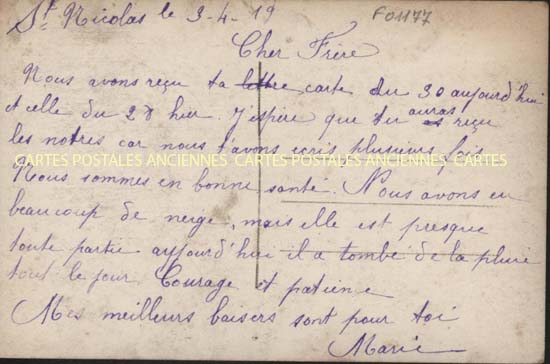 St Nicolas le 3-4-19
F01177
Cher Frère
Nous avons reçu ta lettre carte du 30 aujourd'hui
et celle du 28 hier. J'espère que tu auras reçu
les notres car nous t'avons ecris plusieurs fois
CARTES POSTALES ANCIENNES CARTES POSTALES ANCIENNES, CARTES
Nous sommes en bonne santé. Nous avons eu
beaucoup de neige, mais elle est presque
toute partie aujourd'hui il a tombé de la pluie
tout le jour. Courage et patience
Mes meilleurs baisers sont pour toi
Marie